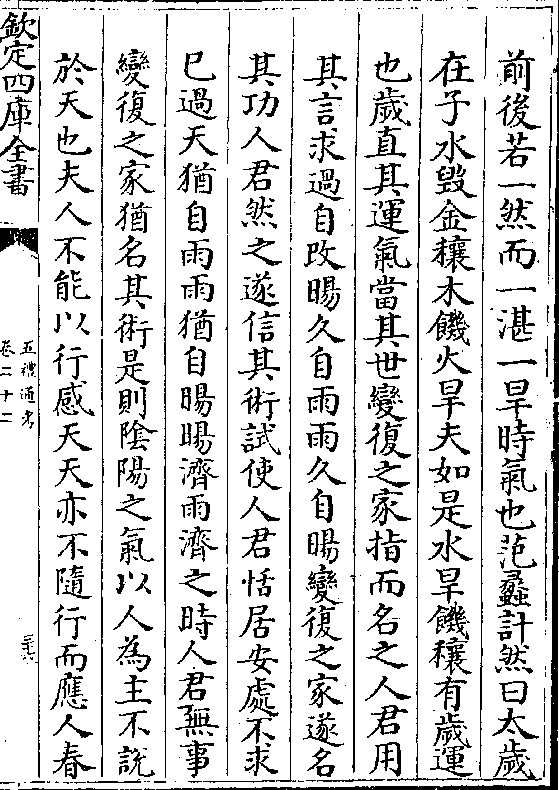 前後若一然而一湛一旱時氣也范蠡計然曰太歲
在子水毁金穰木饑火旱夫如是水旱饑穰有歲運
也歲直其運氣當其世變復之家指而名之人君用
其言求過自改暘久自雨雨久自暘變復之家遂名
其功人君然之遂信其術試使人君恬居安處不求
已過天猶自雨雨猶自暘暘濟雨濟之時人君無事
變復之家猶名其術是則隂陽之氣以人為主不說
於天也夫人不能以行感天天亦不隨行而應人春
欽定四庫全書
五禮通考
卷二十二
三十六